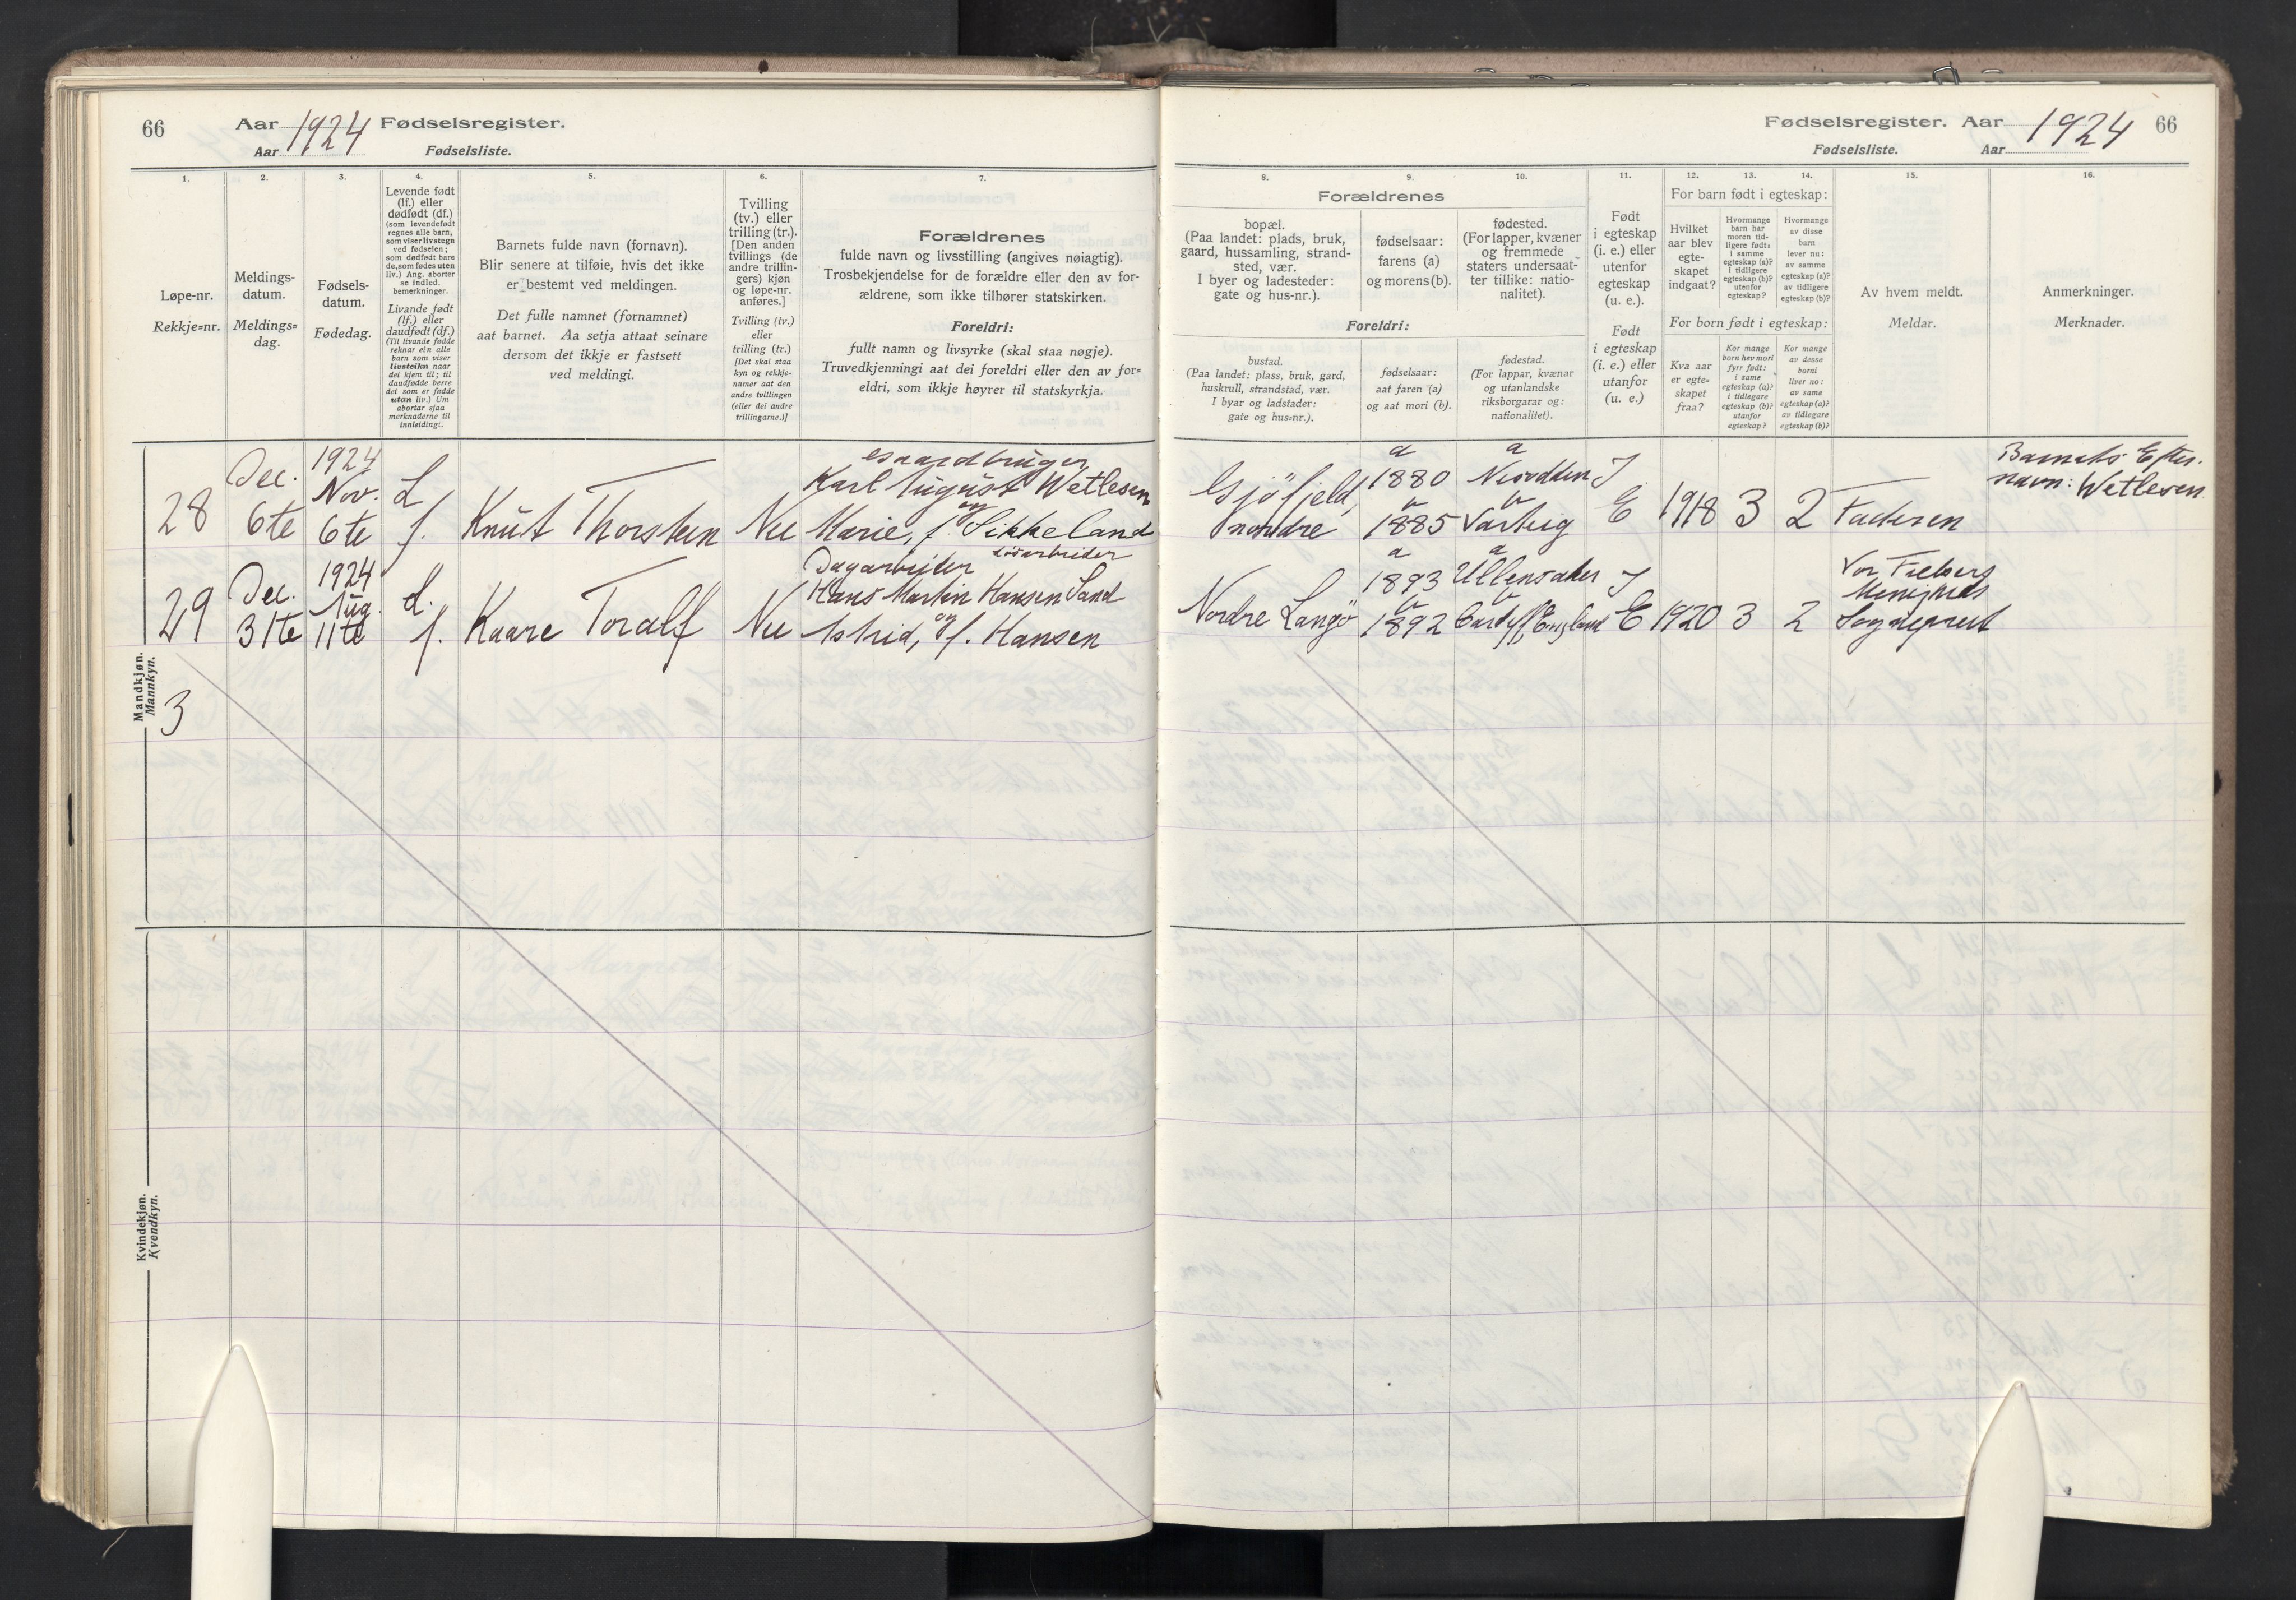 66
Aar 1924 Fødselsregister.
Aar Fødselsliste.
1.
Løpe-nr.
Rekkje=nr.
2.
Meldings-
datum.
Meldings=
dag.
3.
Fødsels-
datum.
Fødedag.
4.
Levende født
(lf.) eller
dødfødt (df.)
(som levendefødt
regnes alle barn,
som viser livstegn
ved fødselen;
som dødfødt bare
de, som fødes uten
liv.) Ang. aborter
se indled.
bemerkninger.
Livande født
(lf.) eller
daudfødt (df.)
(Til livande fødde
reknar ein alle
barn som viser
livsteikn naar
dei kjem til; til
daudfødde berre
dei som er fødde
utan liv.) Um
abortar sjaa
merknaderne til
innleidingi.
5.
Barnets fulde navn (fornavn).
Blir senere at tilføie, hvis det ikke
er bestemt ved meldingen.
Det fulle namnet (fornamnet)
aat barnet. Aa setja attaat seinare
dersom det ikkje er fastsett
ved meldingi.
6.
Tvilling
(tv.) eller
trilling (tr.).
[Den anden
tvillings (de
andre trillin-
gers) kjøn
og løpe-nr.
anføres.]
Tvilling (tv.)
eller
trilling (tr.)
[Det skal staa
kyn og rekkje-
numer aat den
andre tvillingen
(eller dei andre
trillingarne.)]
7.
Forældrenes
fulde navn og livsstilling (angives nøiagtig).
Trosbekjendelse for de forældre eller den av for-
ældrene, som ikke tilhører statskirken.
Foreldri:
fullt namn og livsyrke (skal staa nøgje).
Truvedkjenningi aat dei foreldri eller den av for=
eldri, som ikkje høyrer til statskyrkja.
Mandkjøn.
Mannkyn.
28
Dec.
6te
1924
Nov.
6te
L
f.
Knut Thorstein
Nei
Gaardbruger
Karl August Wetlesen
og
Marie, f. Sikkeland
29
Dec.
31te
1924
Aug.
11te
L.
f.
Kaare Toralf
Nei
Dagarbeider
Hans Martin Hansen Sand
og
Astrid, f. Hansen
3
Kvindekjøn.
Kvendkyn.
Fødselsregister. Aar 1924 66
Fødselsliste. Aar
8.
Forældrenes
bopæl.
(Paa landet: plads, bruk,
gaard, hussamling, strand-
sted, vær.
I byer og ladesteder:
gate og hus-nr.).
9.
fødselsaar:
farens (a)
og morens (b).
10.
fødested.
(For lapper, kvæner
og fremmede
staters undersaat-
ter tillike: natio-
nalitet).
Foreldri:
bustad.
(Paa landet: plass, bruk, gard,
huskrull, strandstad, vær.
I byar og ladstader:
gate og hus=nr.).
fødselsaar:
aat faren (a)
og aat mori (b).
fødestad.
(For lappar, kvænar
og utanlandske
riksborgarar og:
nationalitet).
11.
Født
i egteskap
(i. e.) eller
utenfor
egteskap
(u. e.).
Født
i egteskap
(i. e.) eller
utanfor
(u. e.)
12. 13. 14.
For barn født i egteskap:
Hvilket
aar blev
egte-
skapet
indgaat?
Hvormange
barn har
moren tid-
ligere født:
i samme
egteskap (a)?
i tidligere
egteskap (b)?
utenfor
egteskap?
Hvormange
av disse
barn
lever nu:
av samme
egteskap (a)?
av tidligere
egteskap (b)?
For born født i egteskap:
Kva aar
er egte=
skapet
fraa?
Kor mange
born hev mori
fyrr født:
i same
egteskap (a)?
i tidlegare
egteskap (b)?
utanfor
egteskap?
Kor mange
av desse
borni
liver no:
av same
egteskap (a)?
av tidlegare
egteskap (b)?
15.
Av hvem meldt.
Meldar.
16.
Anmerkninger.
Merknader.
Gjöfjeld,
nordre
a
1880
b
1885
a
Nesodden
b
Varteig
I
E
1918
3
2
Faderen
Barnets Efter-
navn: Wetlesen
Nordre Langö
a
1893
b
1892
a
Ullensaker
b
Cardiff, England
I
E
1920
3
2
Vor Frelsers
Menighets
Sogneprest